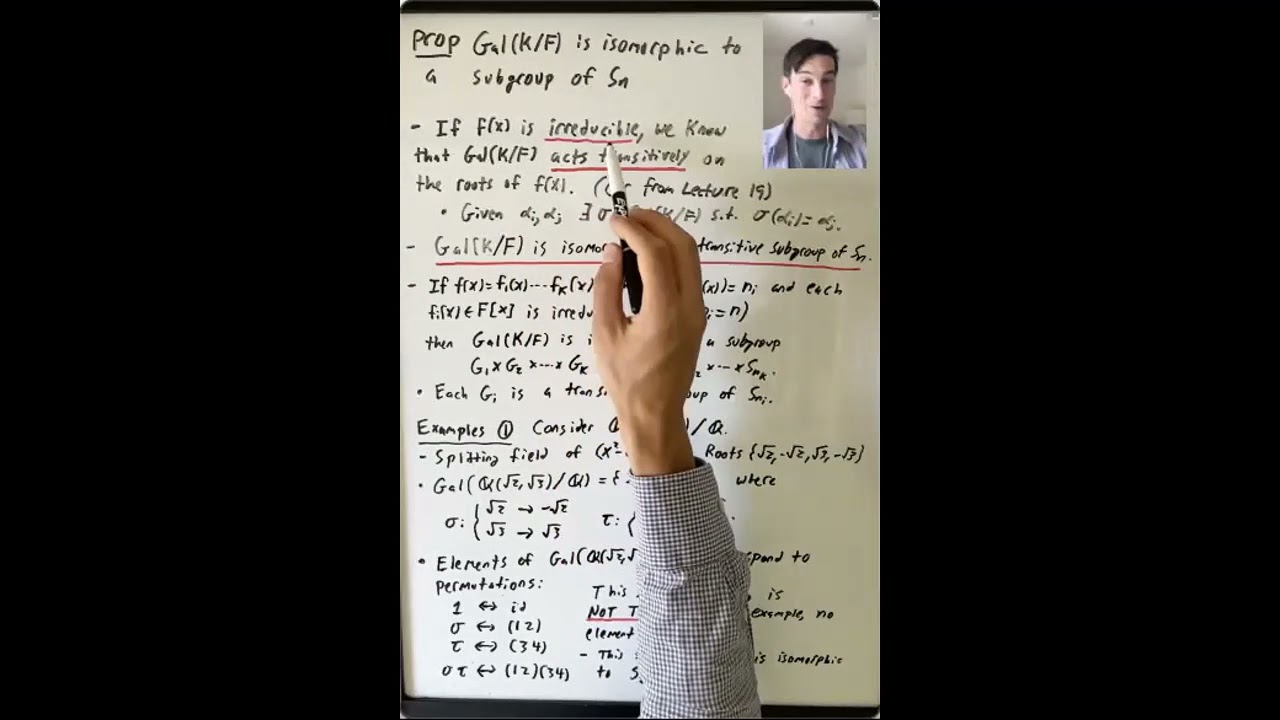 Prop Gal(K/F) is isomorphic to
a subgroup of Sn
- If f(x) is irreducible, we know
that Gal(K/F) acts transitively on
the roots of f(x). from Lecture 19)
• Given αi, αj ∃ σ (K/F) s.t. σ(αi) = αj.
- Gal(K/F) is transitive subgroup of Sn.
- If f(x) = f1(x)···fk(x) (x)) = ni and each
fi(x) ∈ F[x] is = n)
then Gal(K/F) is a subgroup
G1 x G2 x ··· x Gk x ··· x Snk.
• Each Gi is a of Sni.
Examples ① Consider / ℚ.
- Splitting field of (x² Roots {√2, -√2, √3, -√3}
• Gal(ℚ(√2, √3)/ℚ) = { where
σ: { √2 → -√2 τ: {
√3 → √3
• Elements of Gal(ℚ(√2, to
permutations: This is
1 ↔ id NOT example, no
σ ↔ (12) element
τ ↔ (34) - This is isomorphic
στ ↔ (12)(34) to